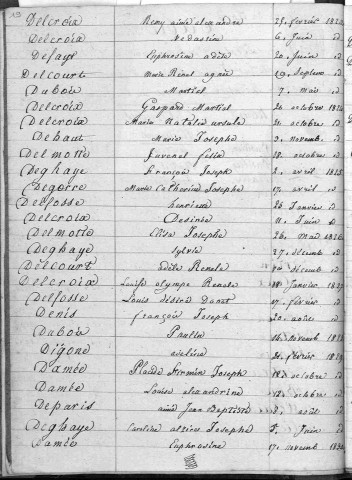 13
Delcroix Remy aimé alexandre 25. fevrier 182
Delcroix Vedastin 6. Juin id
Defays Euphrosine adèle 20. Juin id
Delcourt Marie Renel agnès 29. Septem id
Dubois Martiel 7. mai id
Delcroix Gaspard Martiel 20 octobre 1824
Delcroix Maria Natalie ursule 30. octobre id
Debaut Marie Josephe 3. novemb. id
Delmotte Juvenal felix 28. octobre id
Deghaye françois Joseph 2. avril 1825
Degorre Marie Catherine Josephe 17. avril id
Delfosse henriette 26. Janvier id
Delcroix Desirée 11. Juin id
Delmotte Elisa Josephe 26. Mai 1826
Deghaye Sylvie 27. décemb id
Delcourt adèle Renele décemb id
Delcroix Louise olympe Renele 18. Janvier 1827
Delfosse Louis désiré Donat 17. fevrier id
Denis françois Joseph 20. août id
Dubois Paulle 16. novemb 182
Digone evelise 20. fevrier 1829
Damée Placide firmin Joseph 18. octobre id
Damée Louise alexandrine 12. octobre id
Deparis aimé Jean Baptiste août id
Deghaye Caroline alzire Josephe 5. Juin id
Damée Euphrosine 17. novemb 183